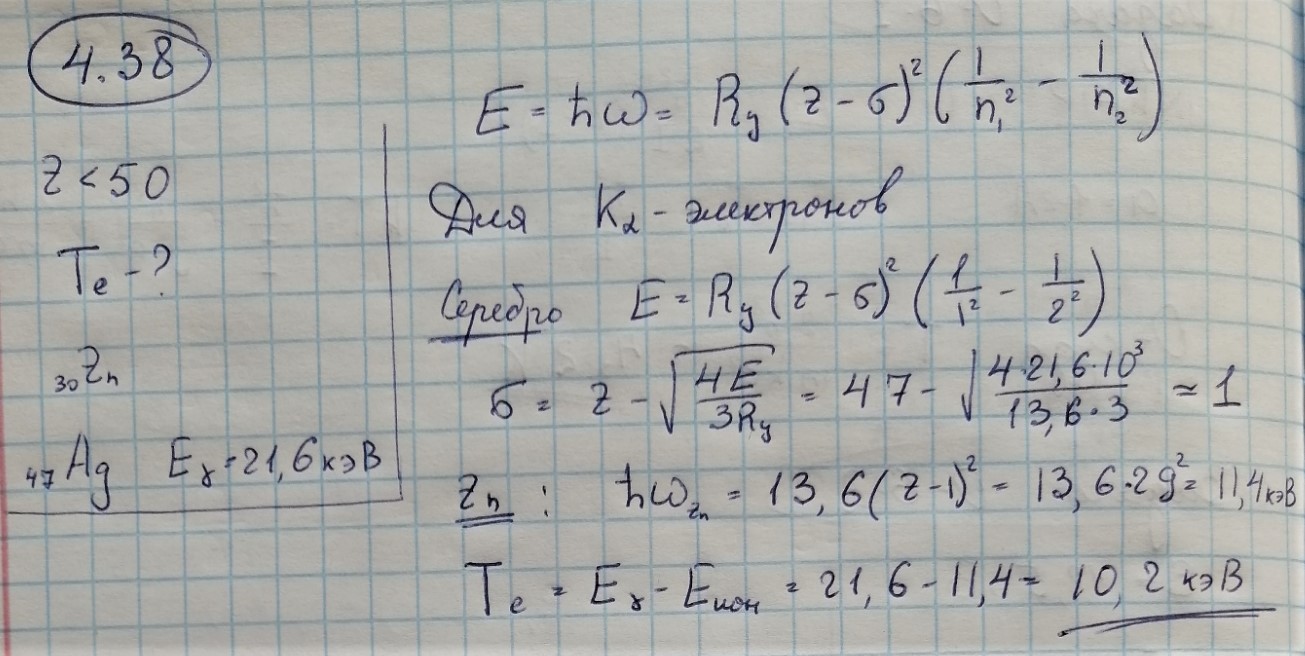 4.38
Z < 50
Te - ?
₃₀Zn
₄₇Ag Eᵧ = 21,6 кэВ
E = ħω = Ry (z - σ)² (1/n₁² - 1/n₂²)
Для Kα - электронов
Серебро E = Ry (z - σ)² (1/1² - 1/2²)
σ = z - √(4E/3Ry) = 47 - √(4·21,6·10³/13,6·3) ≈ 1
Zn : ħω_Zn = 13,6(z-1)² = 13,6·29² = 11,4 кэВ
Te = Eᵧ - Eион = 21,6 - 11,4 = 10,2 кэВ